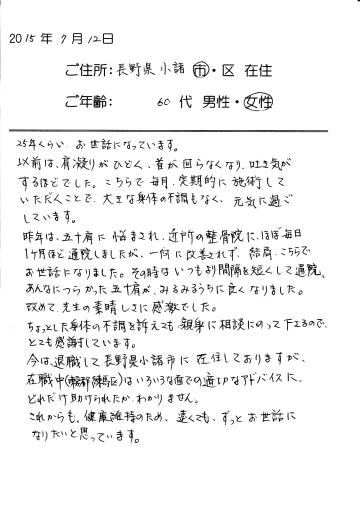 2015年 7月 12日
ご住所：長野県 小諸 市・区 在住
ご年齢： 60 代 男性・女性
25年くらい お世話になっています。
以前は、肩凝りがひどく、首が回らなくなり、吐き気が
するほどでした。こちらで毎月、定期的に施術して
いただくことで、大きな身体の不調もなく、元気に過ご
しています。
昨年は、五十肩に悩まされ、近所の整骨院に、ほぼ毎日
1ヶ月ほど通院しましたが、一向に改善されず、結局、こちらで
お世話になりました。その時はいつもより間隔を短くして通院、
あんなにつらかった五十肩が、みるみるうちに良くなりました。
改めて、先生の素晴しさに感激でした。
ちょっとした身体の不調を訴えても、親身に相談にのって下さるので、
とても感謝しています。
今は、退職して長野県小諸市に在住しておりますが、
在職中(東京都練馬区)はいろいろな面での適切なアドバイスに、
どれだけ助けられたか、わかりません。
これからも、健康維持のため、遠くても、ずっとお世話に
なりたいと思っています。